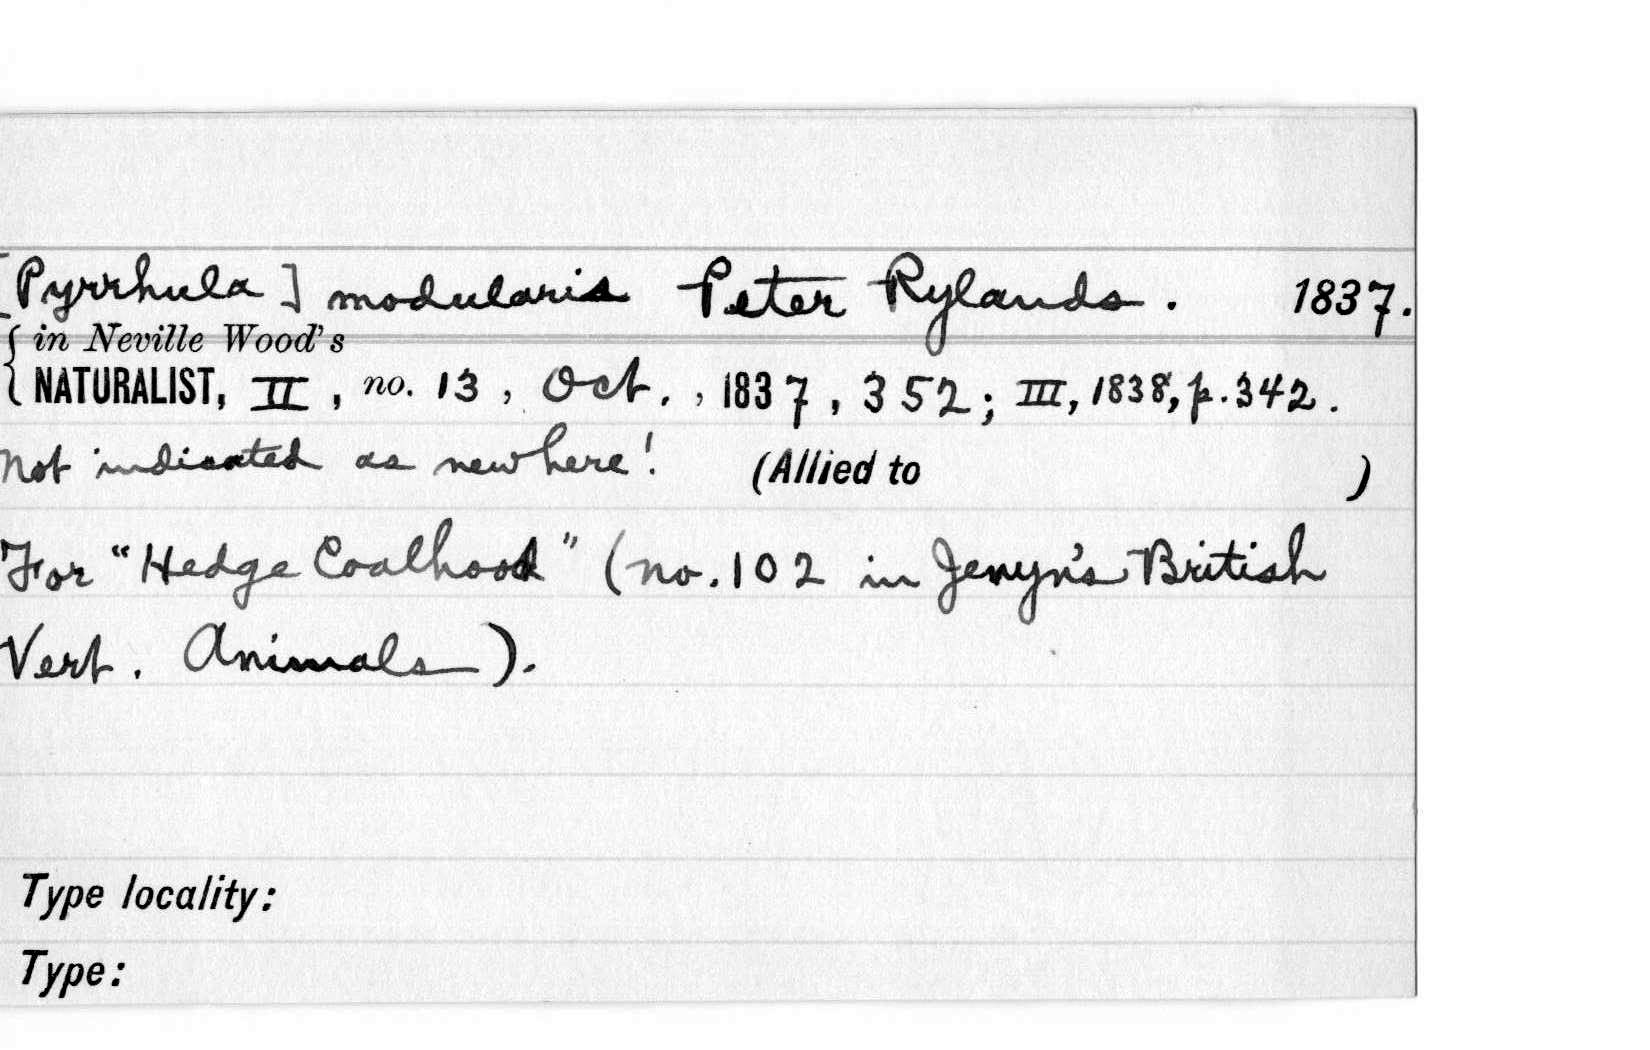 [Pyrrhula] modularis Peter Rylands. 1837.
{ in Neville Wood's
NATURALIST, II, no. 13, Oct., , 1837, 352; III, 1838, p. 342.
Not indicated as new here! (Allied to )
For "Hedge Coalhood" (no. 102 in Jenyn's British
Vert. Animals).
Type locality:
Type: